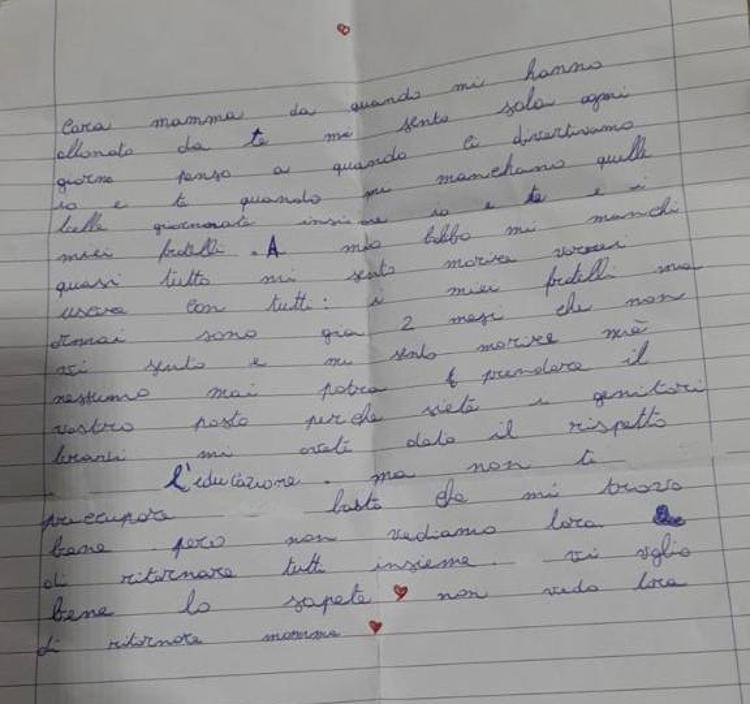 Cara mamma da quando mi hanno
allonato da te mi sento sola ogni
giorno penso a quando ci divertivamo
io e te quando mi manchano quelle
belle giornorate insieme io e te e i
miei fratelli . A mio babbo mi manchi
quasi tutto mi sento morire vorrei
uscire con tutti : i miei fratelli ma
ormai sono gia 2 mesi che non
vi sento e mi sento morire
nessuno mai potra prendere il
vostro posto perche siete i genitori
bravi mi avete dato il rispetto
l'educazione . ma non ti
preccupare basta che mi trovo
bene pero non vediamo lora
di ritornare tutti insieme . vi voglio
bene lo sapete non vedo lora
di ritornare mamma